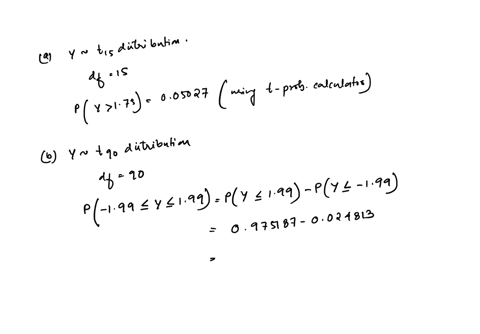 (a) Y ~ t15 distribution.
df = 15
P(Y > 1.75) = 0.05027 (using t-prob. calculator)
(b) Y ~ t90 distribution
df = 90
P(-1.99 ≤ Y ≤ 1.99) = P(Y ≤ 1.99) - P(Y ≤ -1.99)
= 0.975187 - 0.024813
=